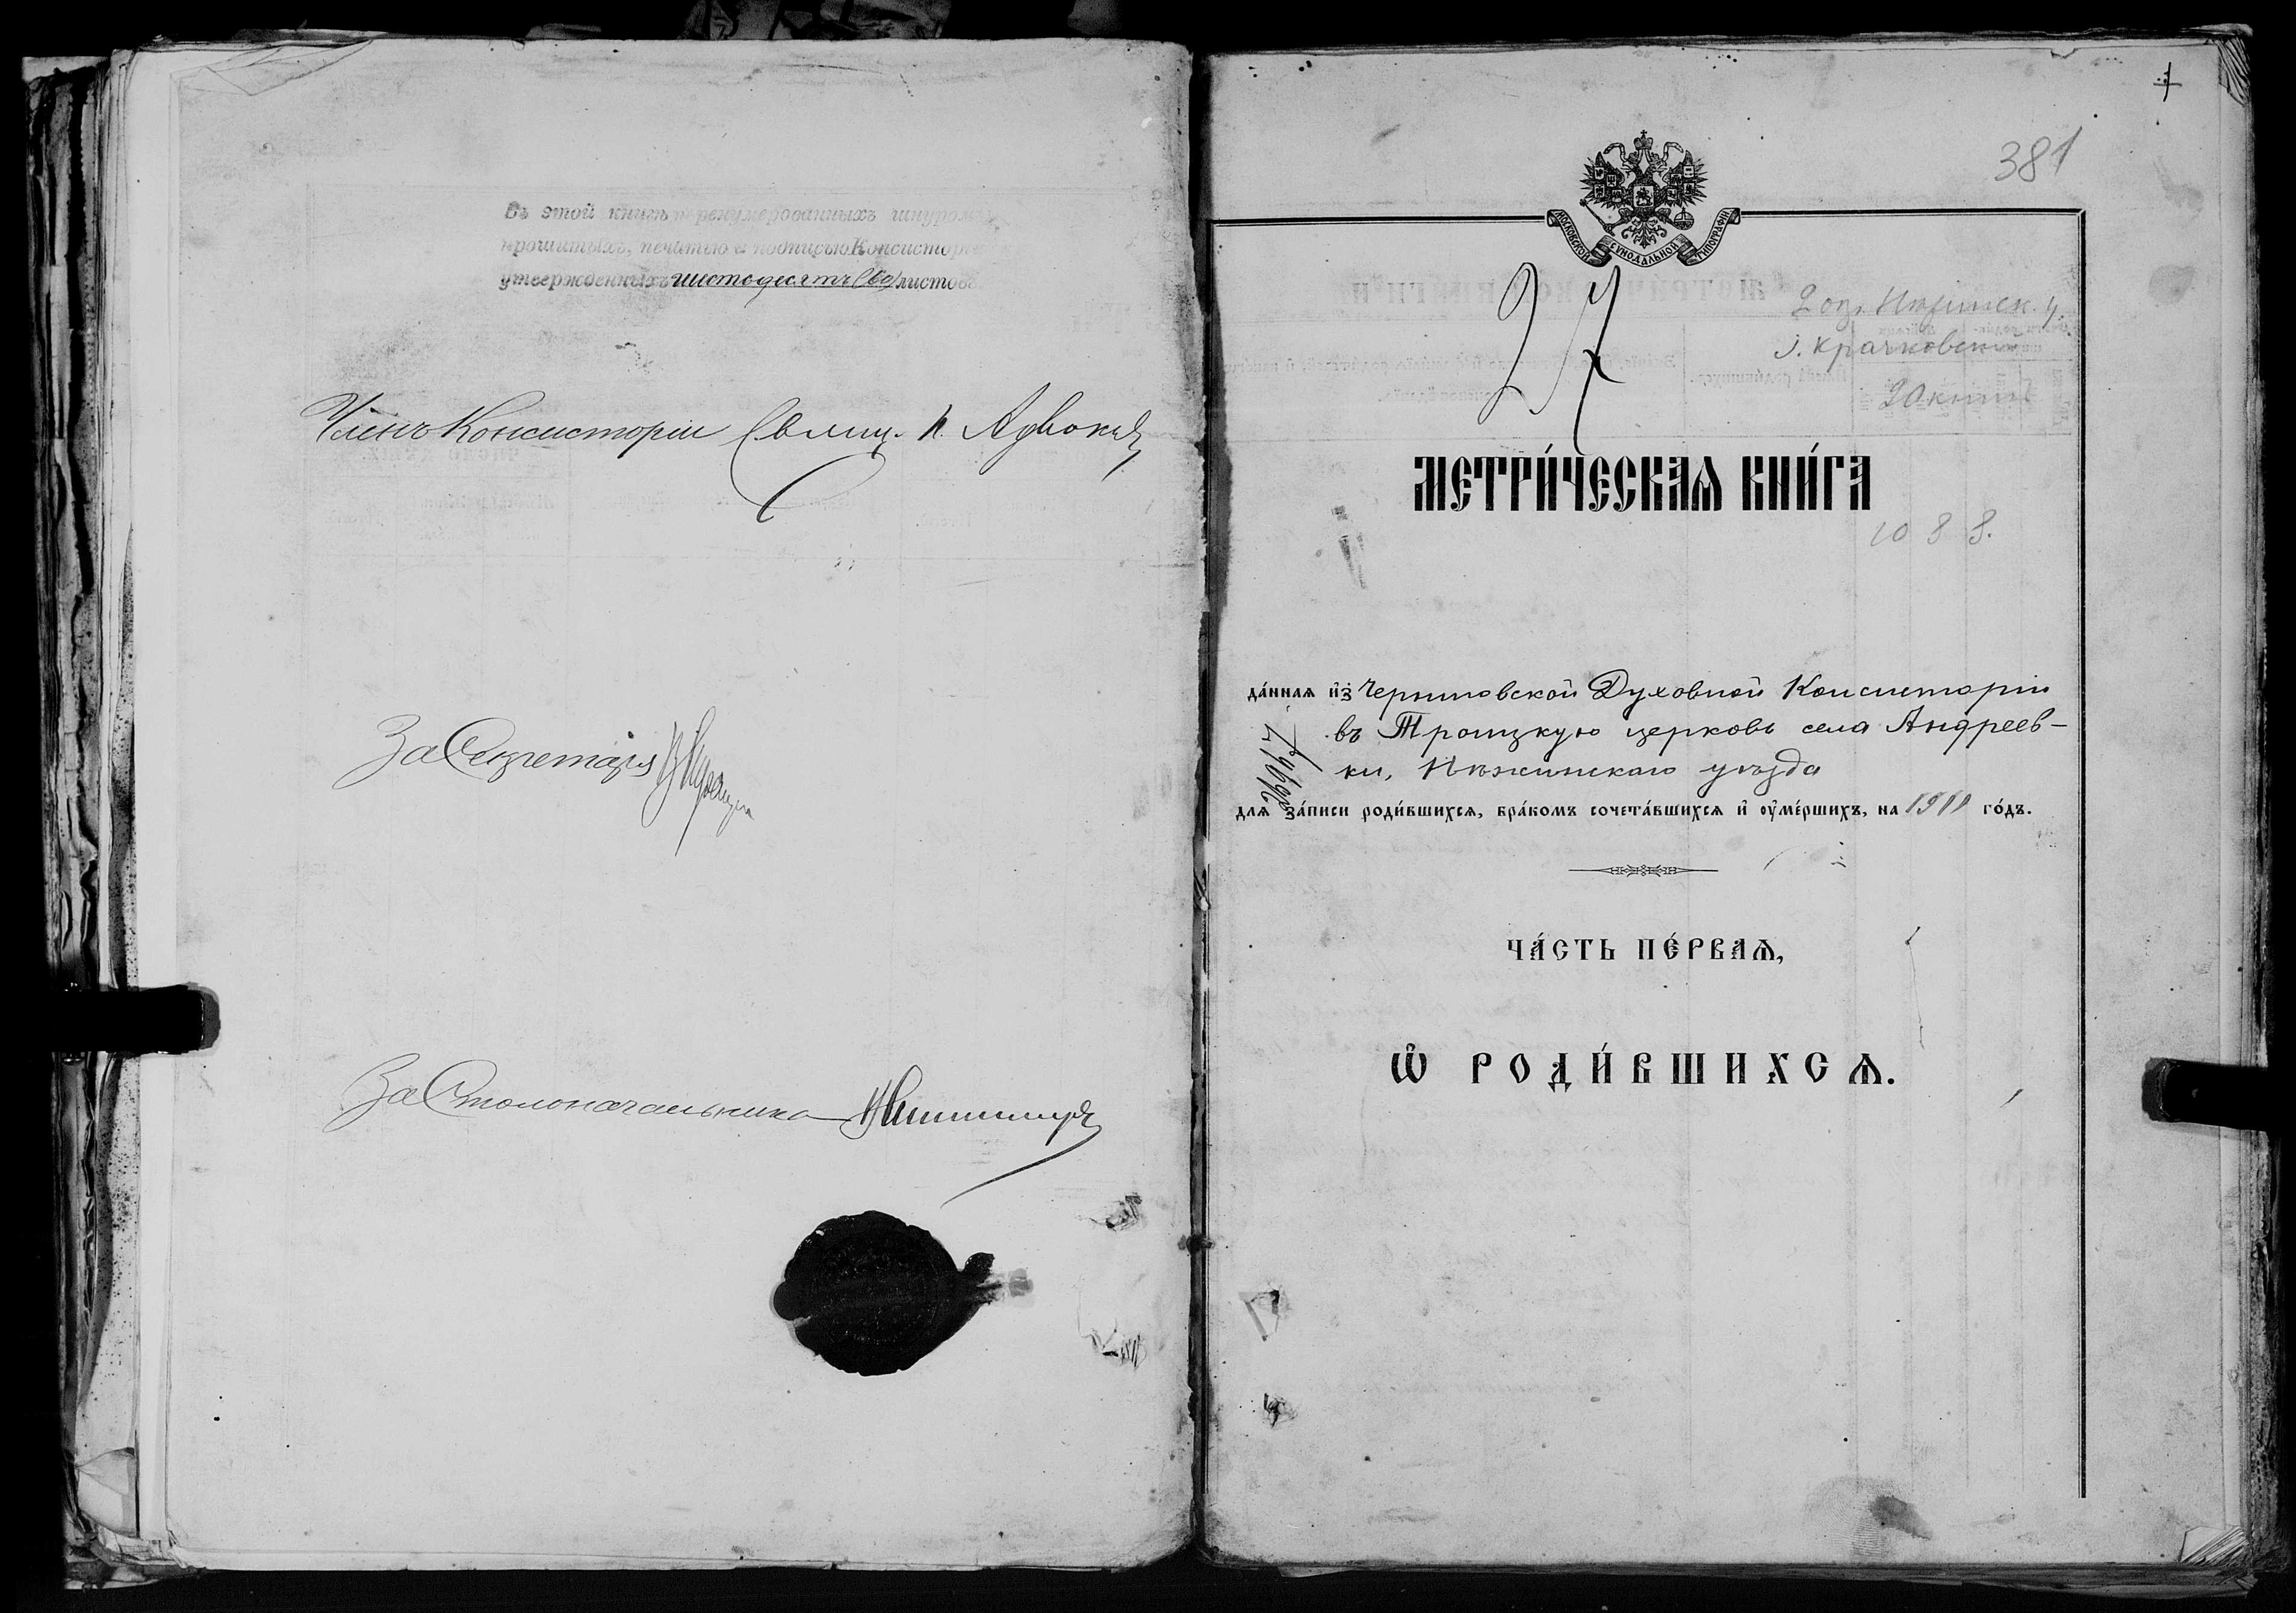 Въ этой книгѣ перенумерованныхъ шнуромъ
прошитыхъ, печатью и подписью Консисторіи
утвержденныхъ шестьдесятъ (60) листовъ
Членъ Консисторіи Священ. П.
За Секретаря
За Столоначальника
1
381
МОСКОВСКОЙ СѴНОДАЛЬНОЙ ТИПОГРАФІИ
27
2 ок. Нѣжинск. у.
Крачковск
20 книг
МЕТРИ́ЧЕСКАѦ КНИ́ГА
1088.
да́ннаѧ и҆з̾ Черниговской Духовной Консисторіи
въ Троицкую церковь села Андреев-
ки, Нѣжинскаго уѣзда
длѧ за́писи роди́вшихсѧ, бра́комъ сочета́вшихсѧ и҆ оу҆ме́ршихъ, на 1911 го́дъ.
ЧА́СТЬ ПЕ́РВАѦ,
Ѡ҆ РОДИ́ВШИХСѦ.